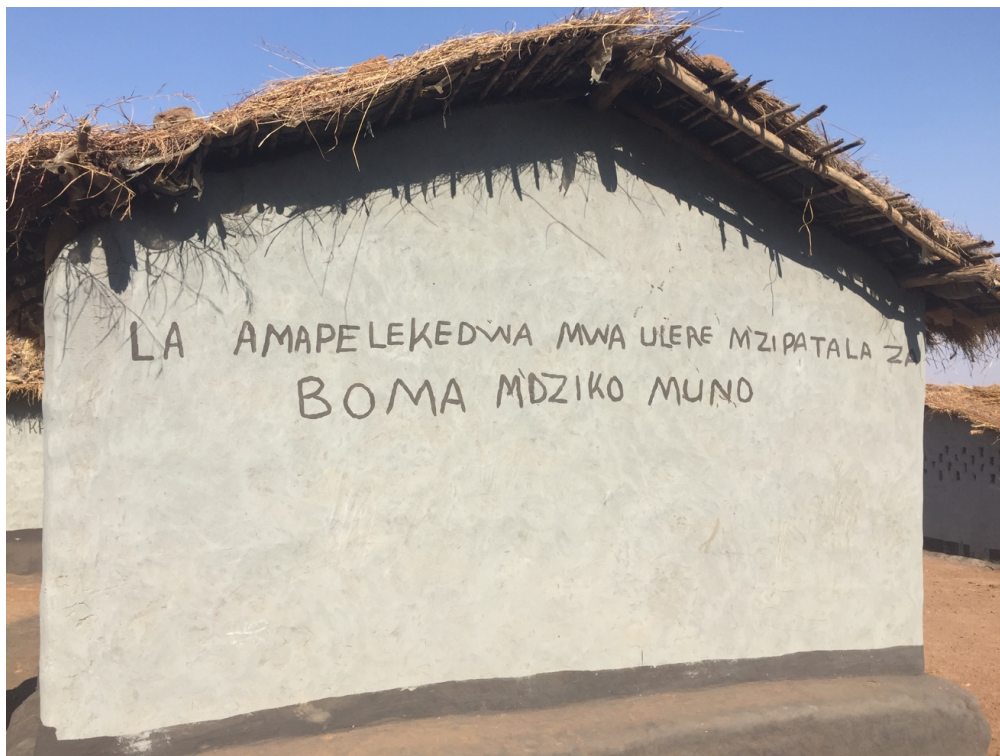 LA AMAPELEKEDWA MWA ULERE M'ZIPATALA ZA
BOMA M'DZIKO MUNO